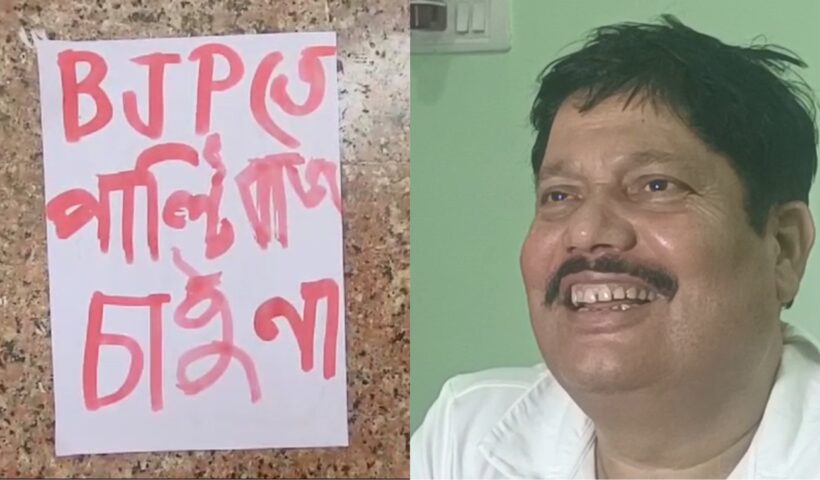 BJPতে
পাল্টিবাজ
চাই না